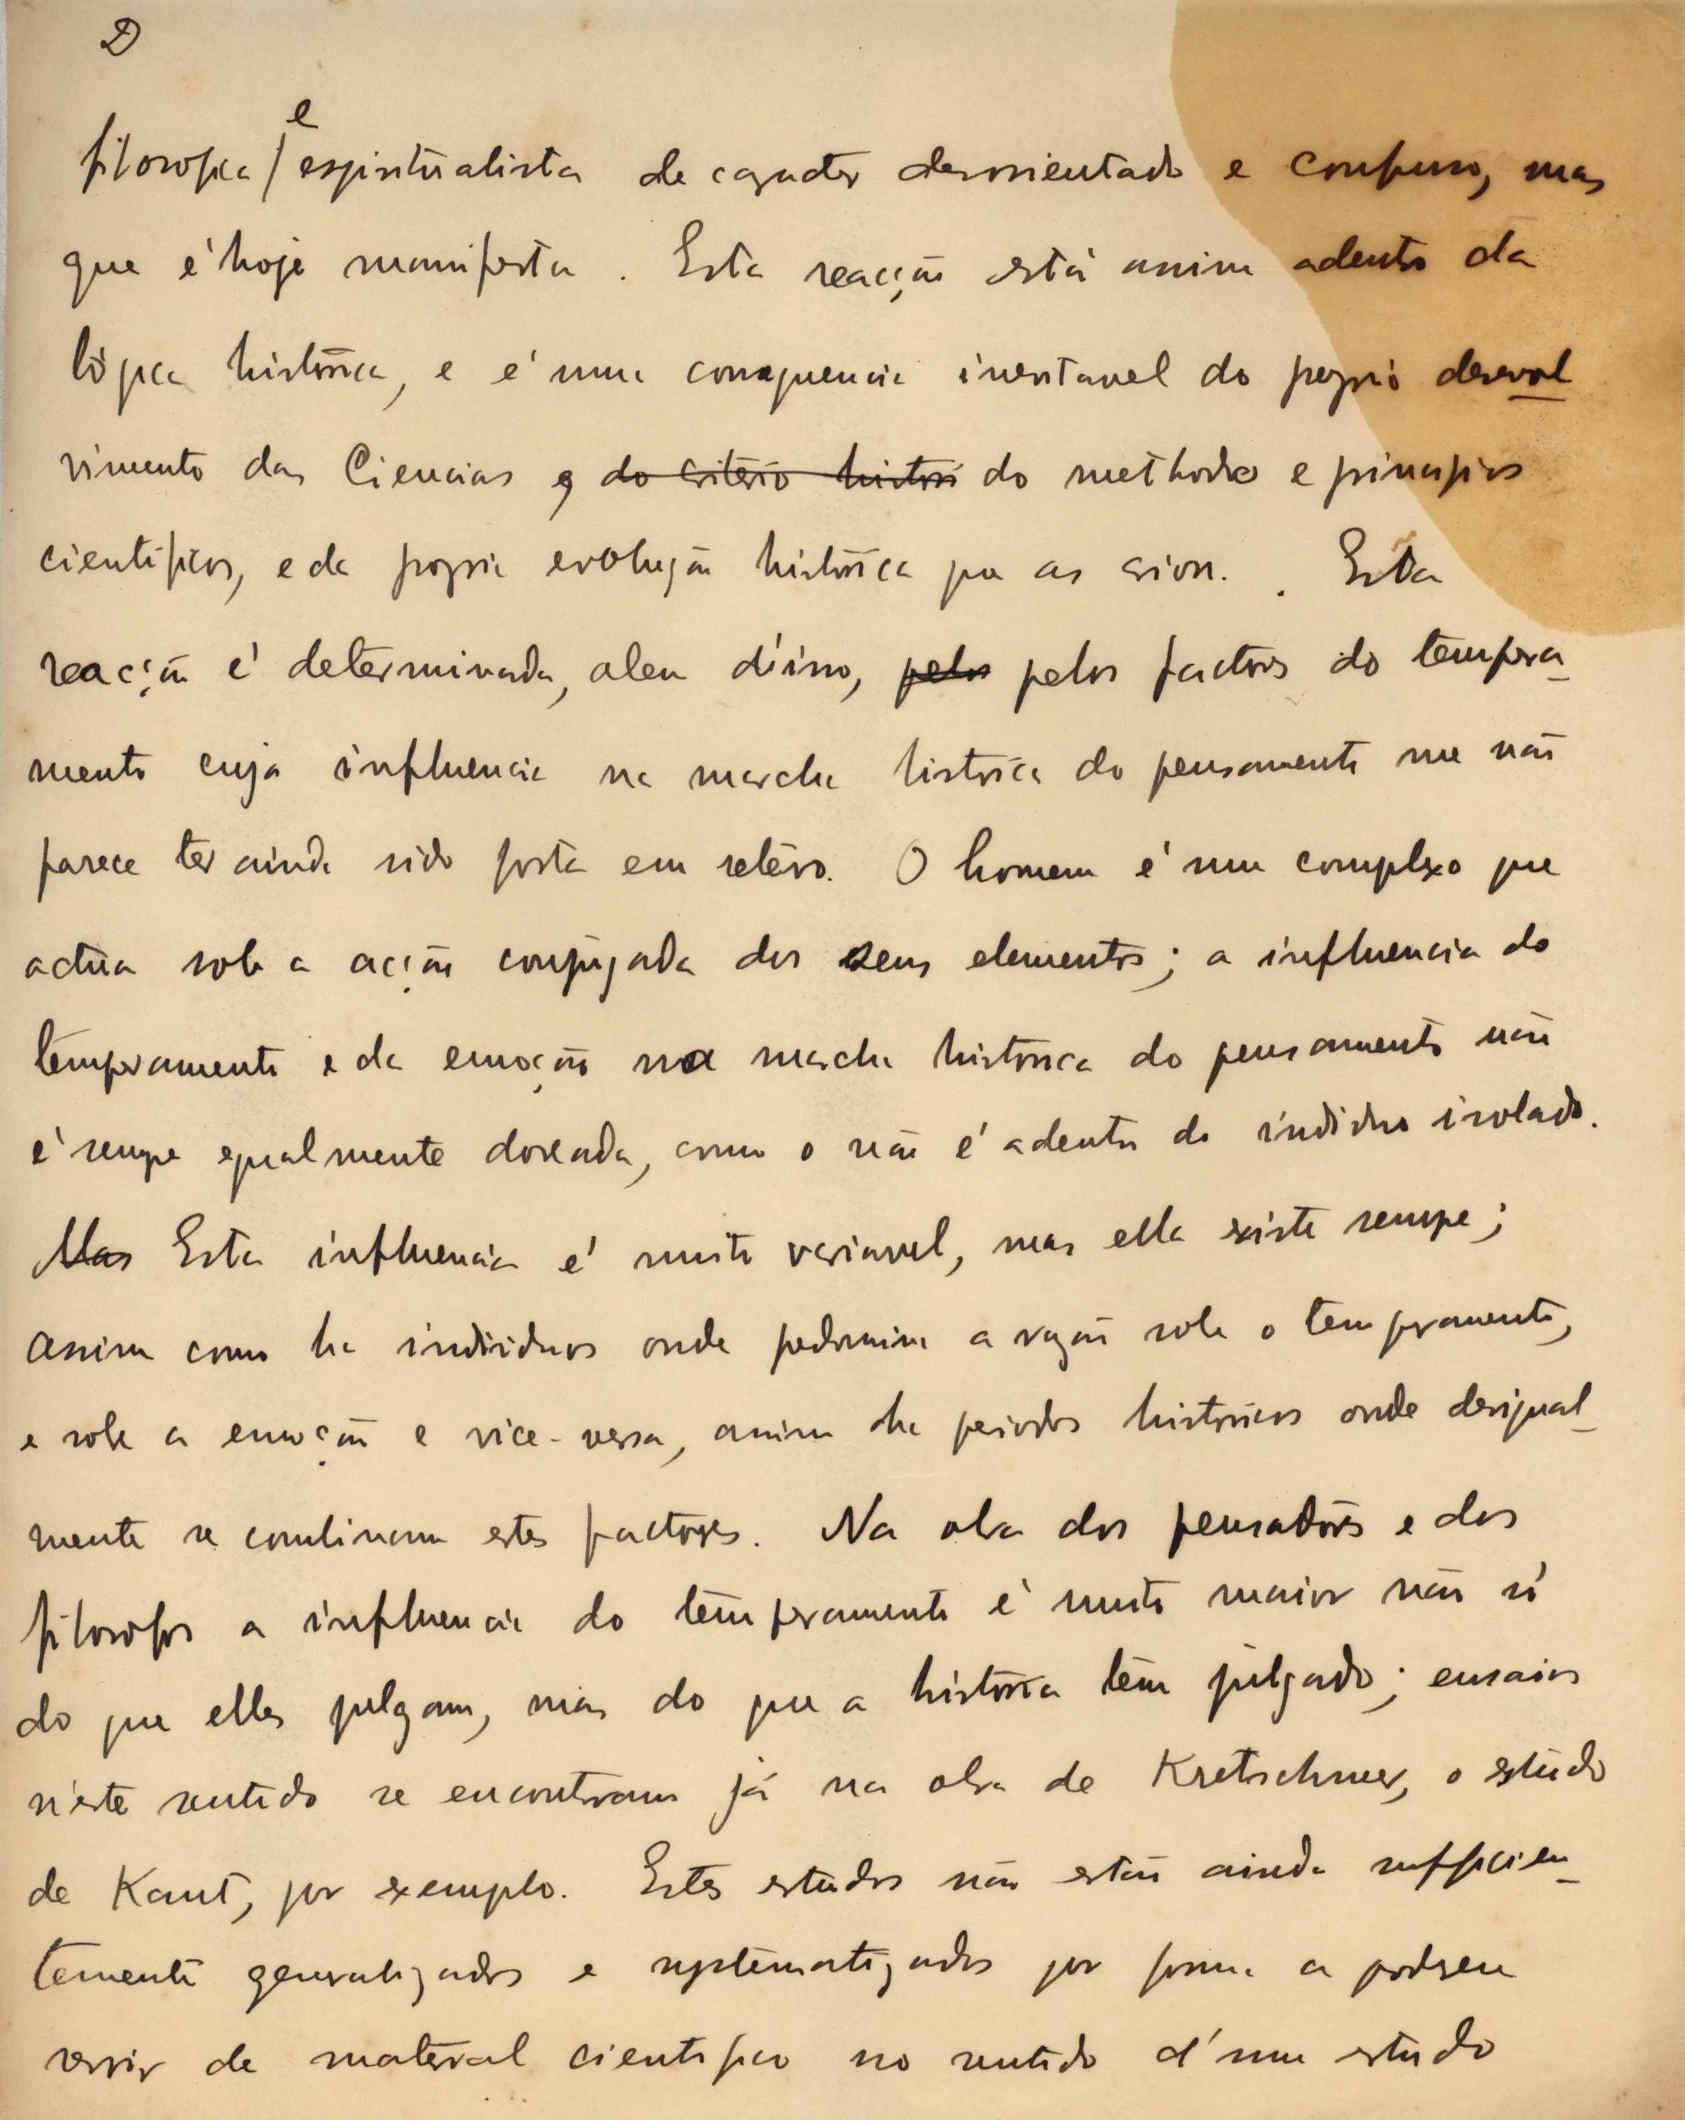 D
e
filosofica / espiritualista de caracter desorientado e confuso, mas
que é hoje manifesta. Esta reacção está assim adentro da
lógica histórica, e é uma consequencia inevitavel do proprio desenvol
vimento das Ciencias e do critério histori do methodo e principios
cientificos, e da propria evolução histórica que as criou. Esta
reacção é determinada, alem d'isso, pelos pelos factores do tempera-
mento cuja influencia na marcha historica do pensamento me não
parece ter ainda sido posta em relêvo. O homem é um complexo que
actua sob a acção conjugada dos seus elementos; a influencia do
temperamento e da emoção na marcha histórica do pensamento não
é sempre egualmente doseada, como o não é adentro do individuo isolado.
Mas Esta influencia é muito variavel, mas ella existe sempre;
assim como ha individuos onde predomina a razão sobre o temperamento,
e sobre a emoção e vice-versa, assim ha periodos historicos onde desigual-
mente se combinam estes factores. Na obra dos pensadores e dos
filosofos a influencia do temperamento é muito maior não só
do que elles julgam, mas do que a história tem julgado; ensaios
n'este sentido se encontram já na obra de Kretschmer, o estudo
de Kant, por exemplo. Estes estudos não estão ainda sufficien-
temente generalizados e systematizados por forma a poderem
servir de material cientifico no sentido d'um estudo